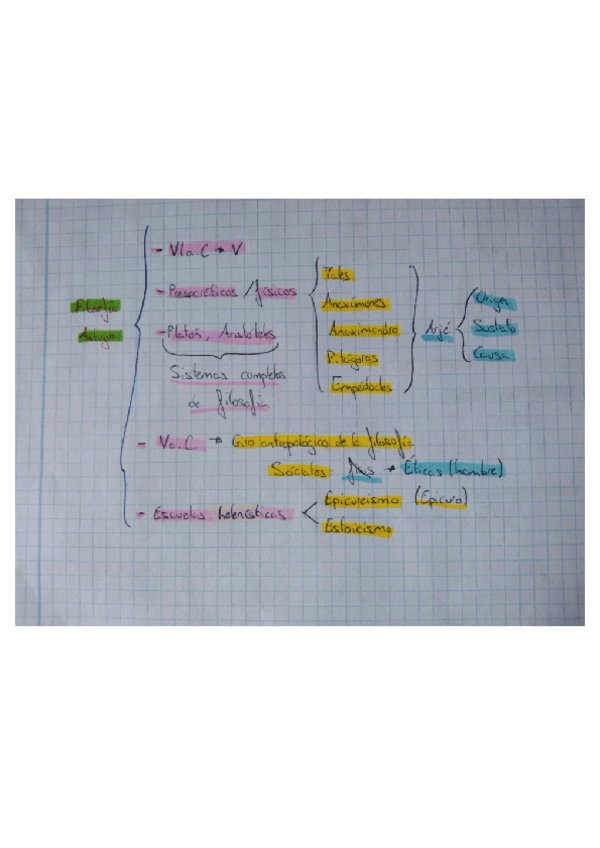 Filosofía
Antigua
- VI a.C → V
- Presocráticos / físicos
Tales
Anaxímenes
Anaximandro
Pitágoras
Empedocles
Arjé
Origen
Sustrato
Causa
- Platón, Aristóteles
Sistemas completos
de filosofía
- V a.C → Giro antropológico de la filosofía
Sócrates → Éticas (hombre)
- Escuelas helenísticas
Epicureismo (Epicuro)
Estoicismo